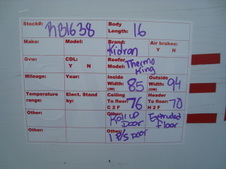 Stock#: RB1638
Body Length: 16
Make: Model: Brand: Kidron Air brakes: Y N
Over CDL: Y N Reefer Model: Thermo King
Mileage: Year: Inside Width: 85 Outside Width: 94
Temperature range: Elect. Stand by: Ceiling To floor: 76 Header To floor: 70
Other: Other: Other: Roll up Door Other: Extruded Floor
Other: Other: Door